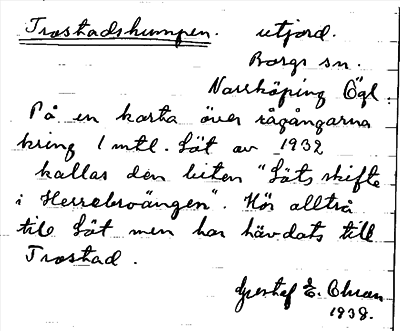 Trostadshumpen. utjord.
Borgs sn.
Norrköping Ögl.
På en karta över rågångarna
kring 1 mtl. Löt av 1932
kallas den biten "Löts skifte
i Herrebroängen". Hör alltså
till Löt men har hävdats till
Trostad.
Gustaf E. Olsson
1938.